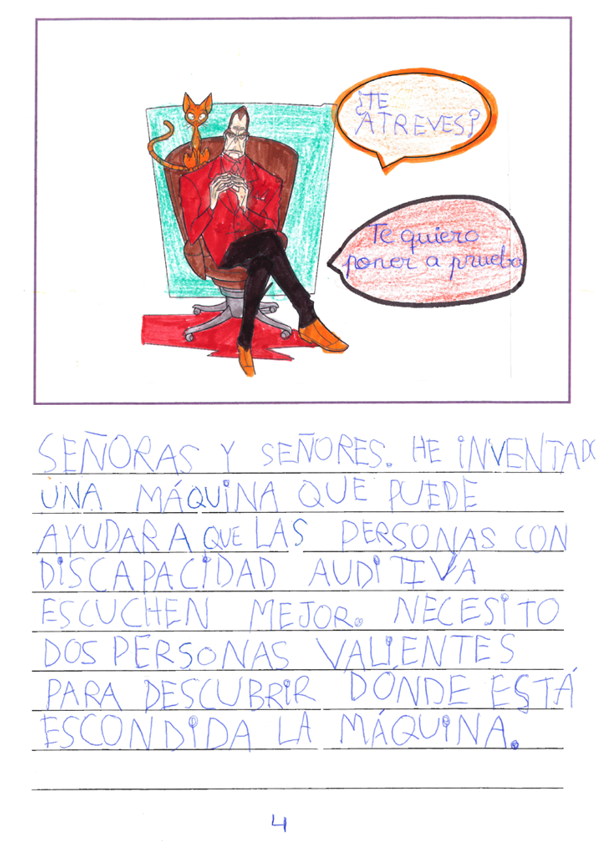 ¿TE
ATREVES?
Te quiero
poner a prueba
SEÑORAS Y SEÑORES. HE INVENTADO
UNA MÁQUINA QUE PUEDE
AYUDAR A QUE LAS PERSONAS CON
DISCAPACIDAD AUDITIVA
ESCUCHEN MEJOR. NECESITO
DOS PERSONAS VALIENTES
PARA DESCUBRIR DÓNDE ESTÁ
ESCONDIDA LA MÁQUINA.
4